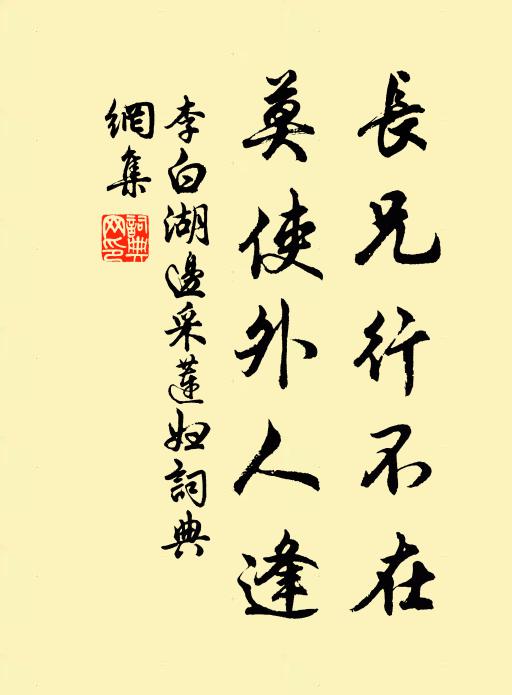 長兄行不在
莫使外人逢
李白湖邊采蓮婦詞典
網集
詞典
网印